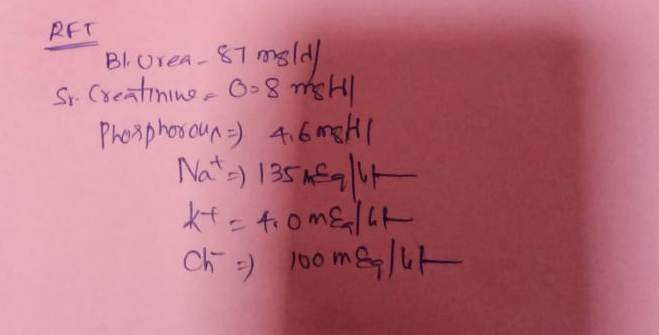 RFT
Bl. Urea - 87 mg/dl
Sr. Creatinine = 0.8 mg/dl
Phosphorous => 4.6 mg/dl
Na+ => 135 mEq/Lt
K+ = 4.0 mEq/Lt
Ch- => 100 mEq/Lt